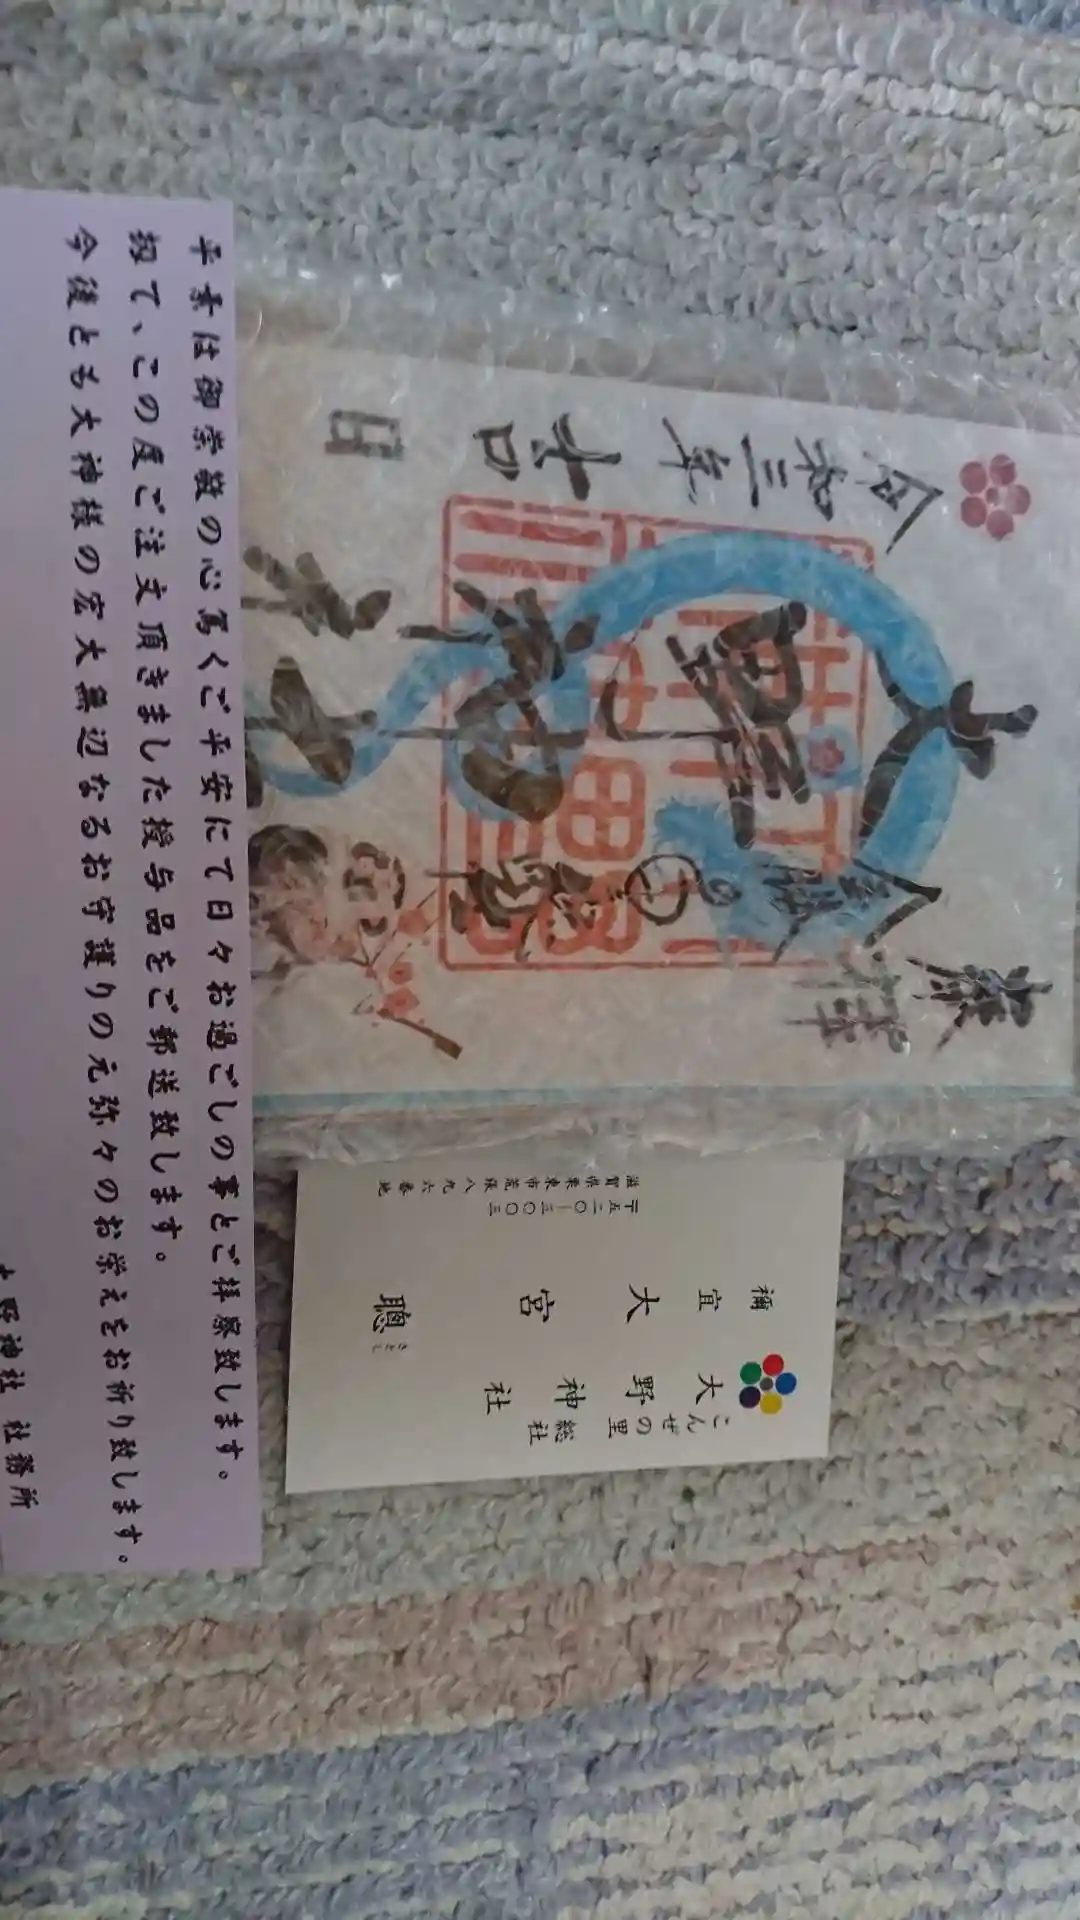 奉拝
大野神社
令和三年 吉日
禰宜 大宮 聰
さとし
こんぜの里 総社
大野神社
〒五二〇―三〇〇三
滋賀県栗東市荒張八九六番地
平素は御崇敬の心篤くご平安にて日々お過ごしの事とご拝察致します。
扨て、この度ご注文頂きました授与品をご郵送致します。
今後とも大神様の宏大無辺なるお守護りの元弥々のお栄えをお祈り致します。
大野神社 社務所